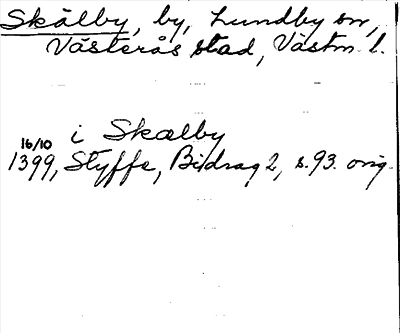 Skälby, by, Lundby sn,
Västerås stad, Västm. l.
i Skælby
16/10
1399, Styffe, Bidrag 2, s. 93. orig.